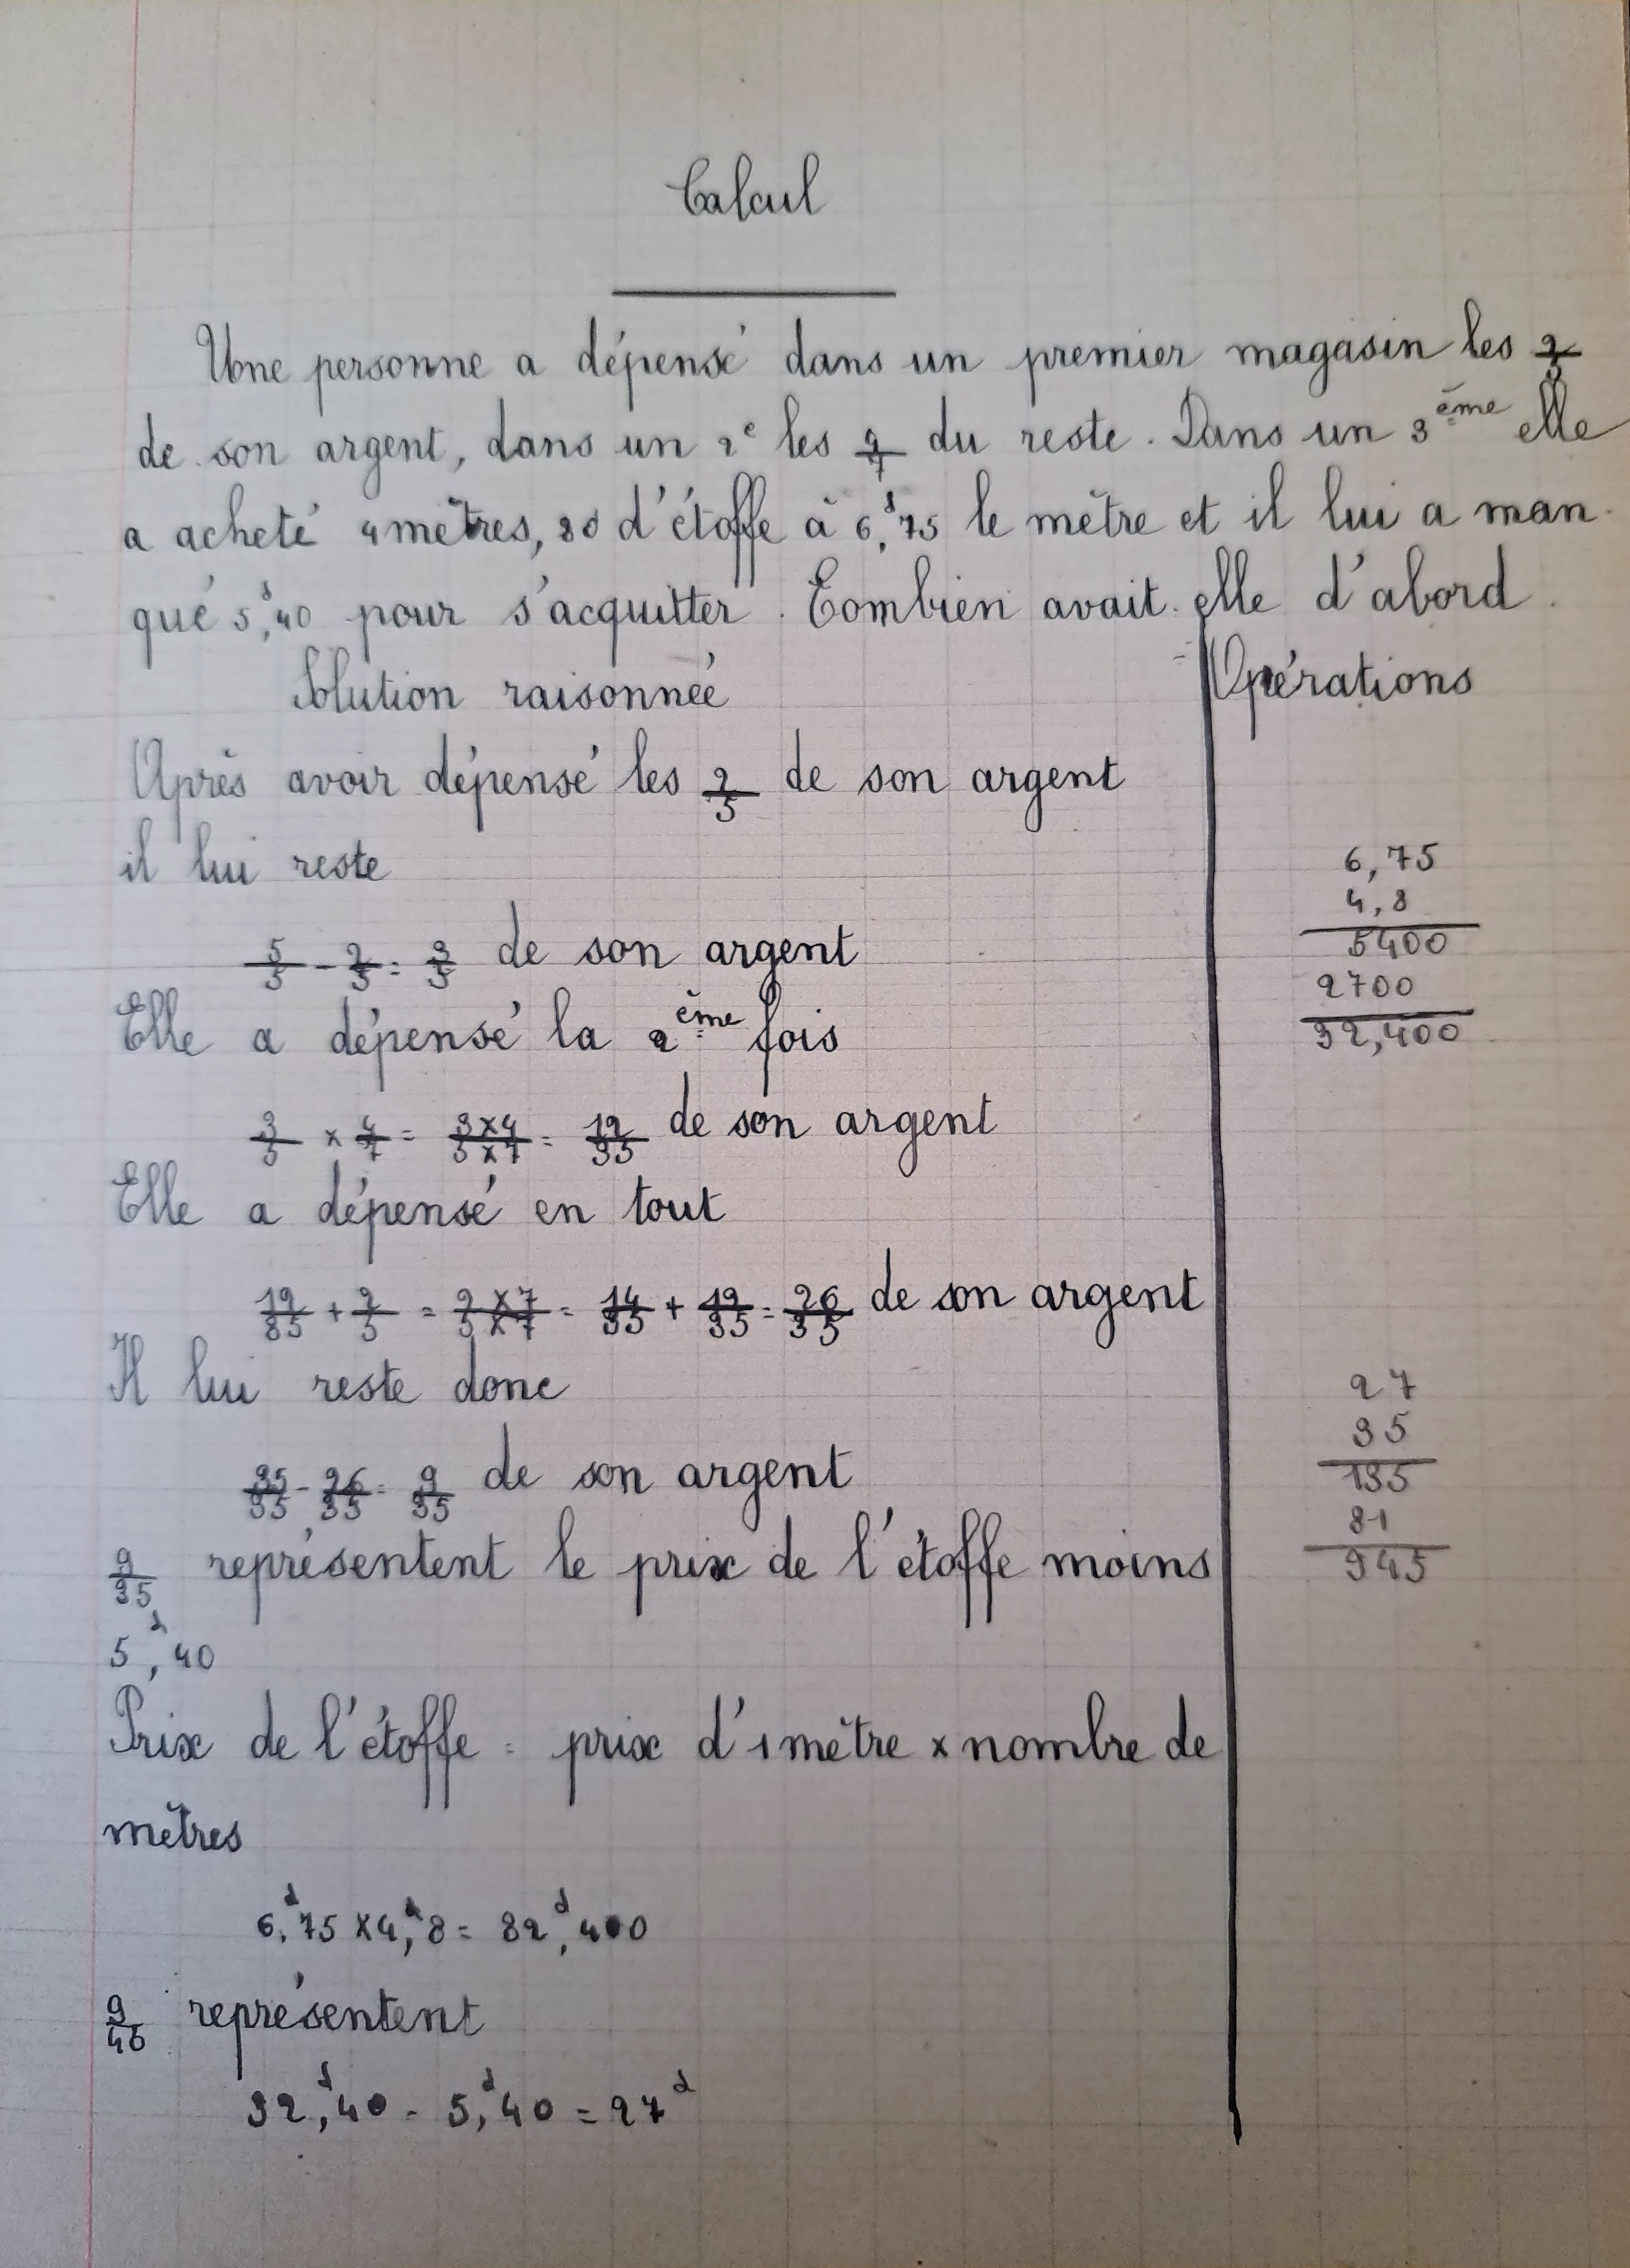 Calcul
Une personne a dépensé dans un premier magasin les 2/5
de son argent, dans un 2e les 4/7 du reste. Dans un 3ème elle
a acheté 4 mètres, 80 d'étoffe à 6d,75 le mètre et il lui a man-
qué 5d,40 pour s'acquitter. Combien avait-elle d'abord.
Solution raisonnée
Opérations
Après avoir dépensé les 2/5 de son argent
il lui reste
5/5 - 2/5 = 3/5 de son argent
Elle a dépensé la 2ème fois
3/5 x 4/7 = 3x4/5x7 = 12/35 de son argent
Elle a dépensé en tout
12/35 + 2/5 = 2x7/5x7 = 14/35 + 12/35 = 26/35 de son argent
Il lui reste donc
35/35 - 26/35 = 9/35 de son argent
9/35 représentent le prix de l'étoffe moins
5d,40
Prix de l'étoffe = prix d'1 mètre x nombre de
mètres
6d,75 x 4,8 = 32d,400
9/45 représentent
32d,40 - 5d,40 = 27d
6,75
4,8
5400
2700
32,400
27
35
135
81
945